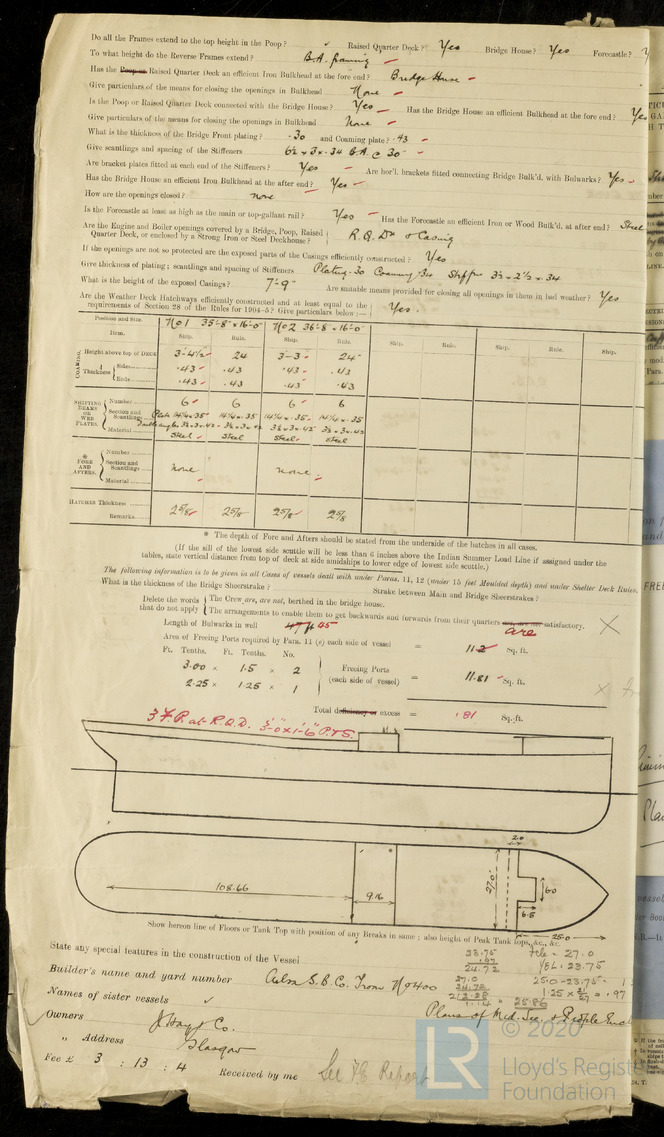 Do all the Frames extend to the top height in the Poop? Raised Quarter Deck? Yes Bridge House? Yes Forecastle?
To what height do the Reverse Frames extend? B.A. framing
Has the Poop or Raised Quarter Deck an efficient Iron Bulkhead at the fore end? Bridge House
Give particulars of the means for closing the openings in Bulkhead None
Is the Poop or Raised Quarter Deck connected with the Bridge House? Yes Has the Bridge House an efficient Bulkhead at the fore end? Yes
Give particulars of the means for closing the openings in Bulkhead None
What is the thickness of the Bridge Front plating? .30 and Coaming plate? .43
Give scantlings and spacing of the Stiffeners 6½ x 3 x .34 B.A. @ 30"
Are bracket plates fitted at each end of the Stiffeners? Yes Are hor'l. brackets fitted connecting Bridge Bulk'd. with Bulwarks? Yes
Has the Bridge House an efficient Iron Bulkhead at the after end? Yes
How are the openings closed? none
Is the Forecastle at least as high as the main or top-gallant rail? Yes Has the Forecastle an efficient Iron or Wood Bulk'd. at after end? Steel
Are the Engine and Boiler openings covered by a Bridge, Poop, Raised Quarter Deck, or enclosed by a Strong Iron or Steel Deckhouse? R.Q. Dk & Casing
If the openings are not so protected are the exposed parts of the Casings efficiently constructed? Yes
Give thickness of plating; scantlings and spacing of Stiffeners Plating .30 Coaming .34 Stiffrs 3½ x 2½ x .34
What is the height of the exposed Casings? 7'-9" Are suitable means provided for closing all openings in them in bad weather? Yes
Are the Weather Deck Hatchways efficiently constructed and at least equal to the requirements of Section 28 of the Rules for 1904-5? Give particulars below:— Yes.
Position and Size. No 1 35'-8" x 16'-0" No 2 36'-8" x 16'-0"
Item. Ship. Rule. Ship. Rule. Ship. Rule. Ship. Rule. Ship.
COAMING. Height above top of DECK 3'-4½" 24 3'-3" 24"
Thickness Sides .43 .43 .43 .43
Ends .43 .43 .43 .43
SHIFTING BEAMS OR WEB PLATES. Number 6 6 6 6
Section and Scantlings Plate 14¼ x .35 14¼ x .35 14¼ x .35 14¼ x .35
Double angles 3½ x 3 x .42 3½ x 3 x .42 3½ x 3 x .42 3½ x 3 x .42
Material Steel Steel Steel Steel
* FORE AND AFTERS. Number
Section and Scantlings none none
Material
HATCHES Thickness 2⅝ 2⅝ 2⅝ 2⅝
Remarks
* The depth of Fore and Afters should be stated from the underside of the hatches in all cases.
(If the sill of the lowest side scuttle will be less than 6 inches above the Indian Summer Load Line if assigned under the
tables, state vertical distance from top of deck at side amidships to lower edge of lowest side scuttle.)
The following information is to be given in all Cases of vessels dealt with under Paras. 11, 12 (under 15 feet Moulded depth) and under Shelter Deck Rules.
What is the thickness of the Bridge Sheerstrake? Strake between Main and Bridge Sheerstrakes?
Delete the words that do not apply
The Crew are, are not, berthed in the bridge house.
The arrangements to enable them to get backwards and forwards from their quarters are satisfactory.
Length of Bulwarks in well 47 ft 45
Area of Freeing Ports required by Para. 11 (e) each side of vessel = 11.2 Sq. ft.
Ft. Tenths. Ft. Tenths. No.
3.00 x 1.5 x 2
2.25 x 1.25 x 1
Freeing Ports (each side of vessel) = 11.81 Sq. ft.
Total deficiency or excess = .81 Sq. ft.
3 F.P. at R.Q.D. 3'-0" x 1'-6" P. & S.
108.66
9.16
27.0
2.0
6.0
6.5
25.0
Show hereon line of Floors or Tank Top with position of any Breaks in same; also height of Peak Tank tops, &c., &c.
State any special features in the construction of the Vessel
23.75
.97
24.72
27.0
= 27.0
23.75
25.0 - 23.75
25.86
Builder's name and yard number Ailsa S.B. Co. Troon No 400
Names of sister vessels
Owners J Hay & Co.
„ Address Glasgow
Plans of Mid. Sec. & Profile
Fee £ 3 : 13 : 4 Received by me See F.E. Report
© 2020
LR
Lloyd's Register
Foundation